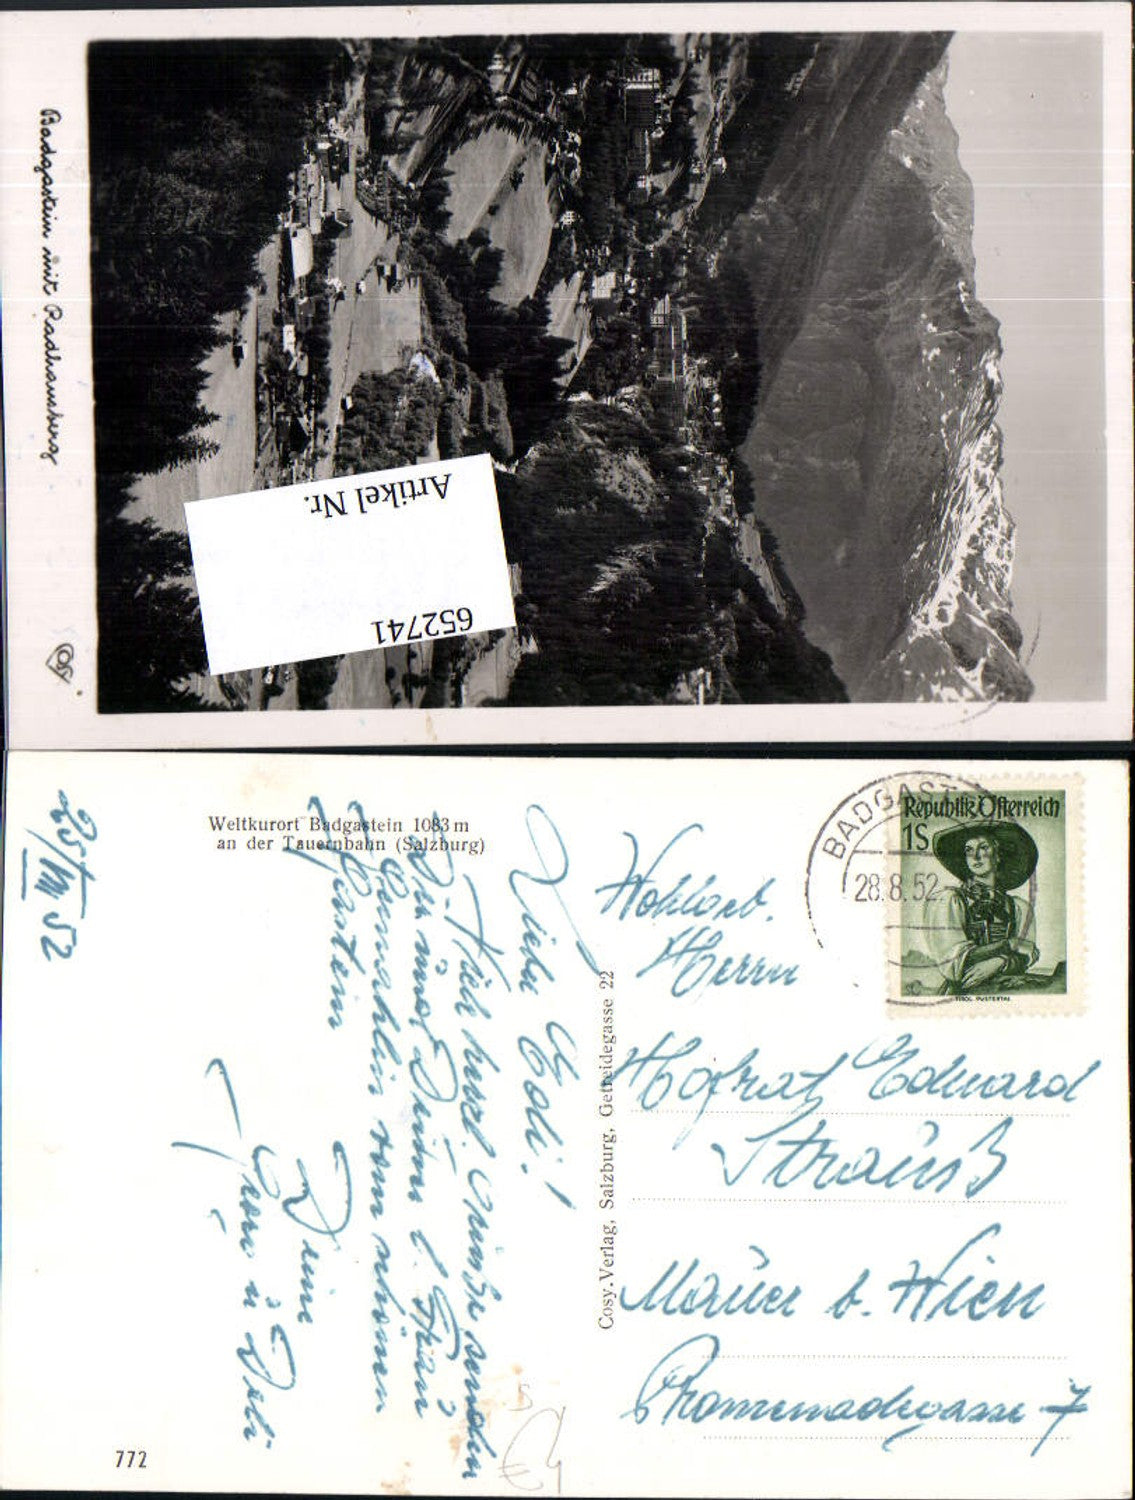 Badgastein mit Radhausberg
Cosy
Artikel Nr.
652741
Weltkurort Badgastein 1083 m
an der Tauernbahn (Salzburg)
25/VIII 52
Liebe Edi!
Hiebe herzl. Grüße senden
Dir und Deiner l. Frau
Gemahlin vom schönen
Gastein
Deine
u.
772
Cosy-Verlag, Salzburg, Getreidegasse 22
BADGAST
28.8.52
Republik Österreich
1S
TIROL PUSTERTAL
Wohlgeb.
Herrn
Hofrat Eduard
Strauß
Mauer b. Wien
Promenadegasse 7